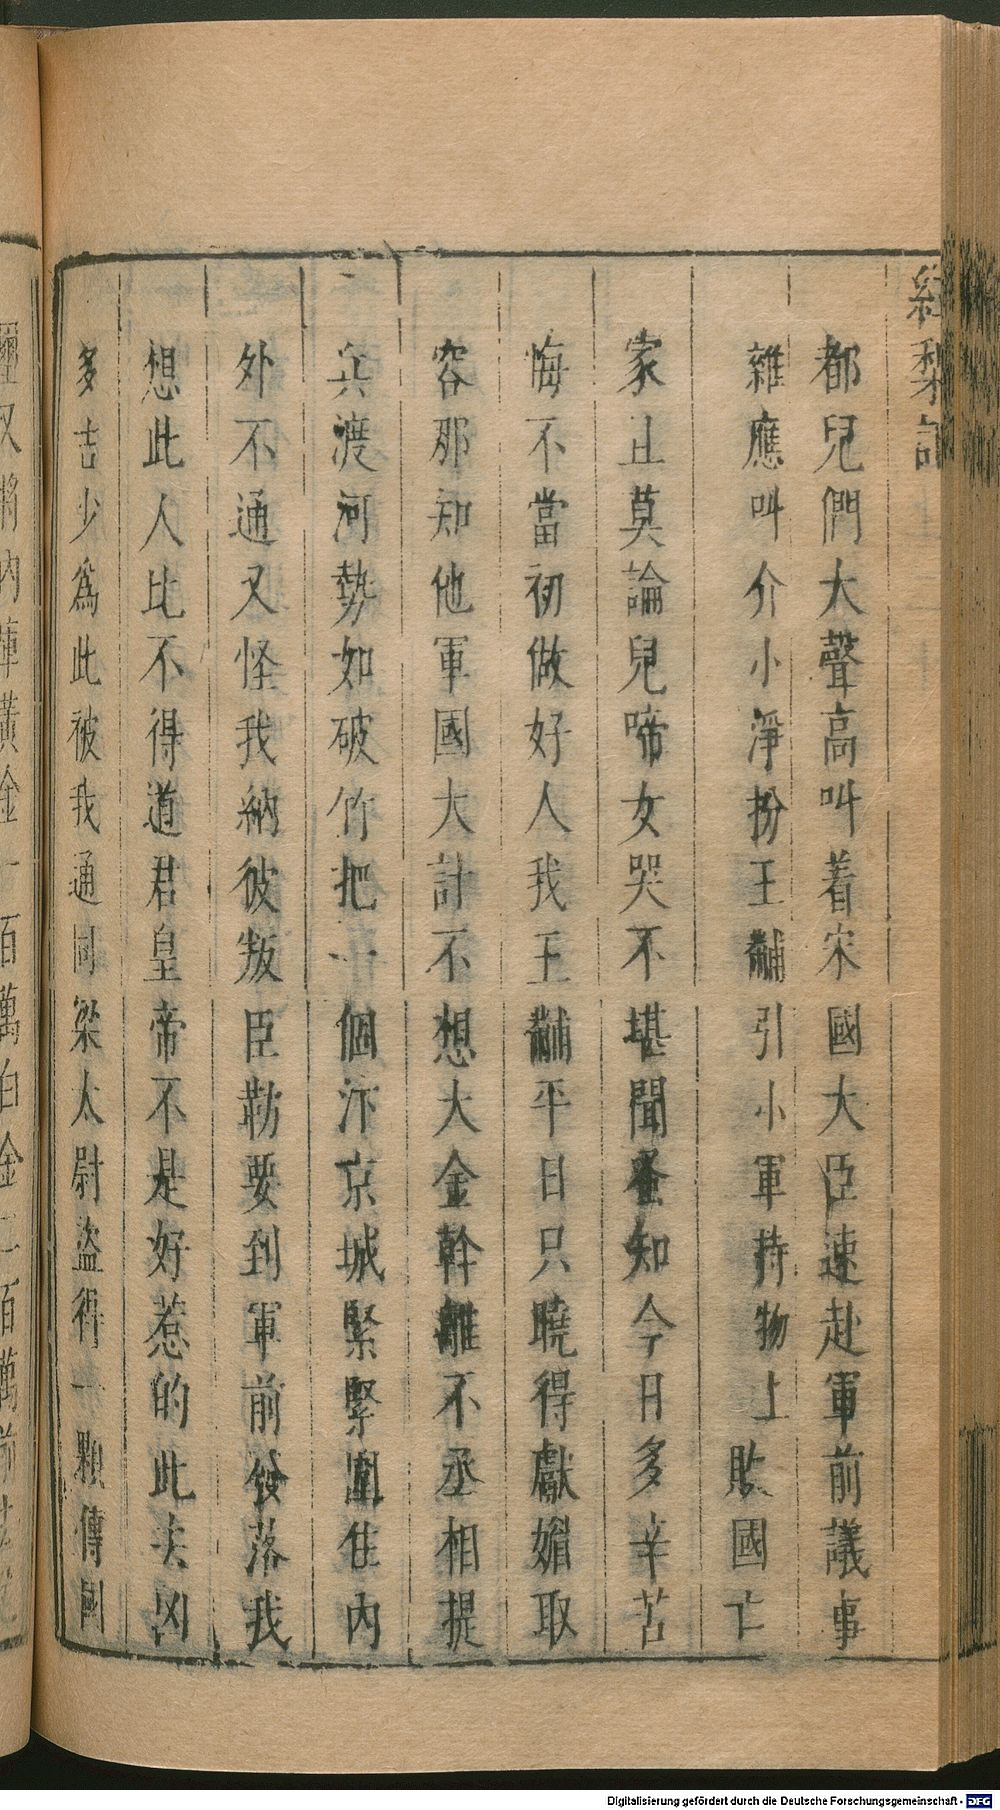 紅梨記
都兒們大聲高叫着宋國大臣速赴軍前議事
雜應叫介小淨扮王黼引小軍持物上敗國亡
家且莫論兒啼女哭不堪聞蚤知今日多辛苦
悔不當初做好人我王黼平日只曉得獻媚取
容那知他軍國大計不想大金幹離不丞相提
兵渡河勢如破竹把一個汴京城緊緊圍住內
外不通又怪我納彼叛臣勒要到軍前發落我
想此人比不得道君皇帝不是好惹的此去凶
多吉少為此被我通同梁太尉盜得一顆傳國
Digitalisierung gefördert durch die Deutsche Forschungsgemeinschaft - DFG